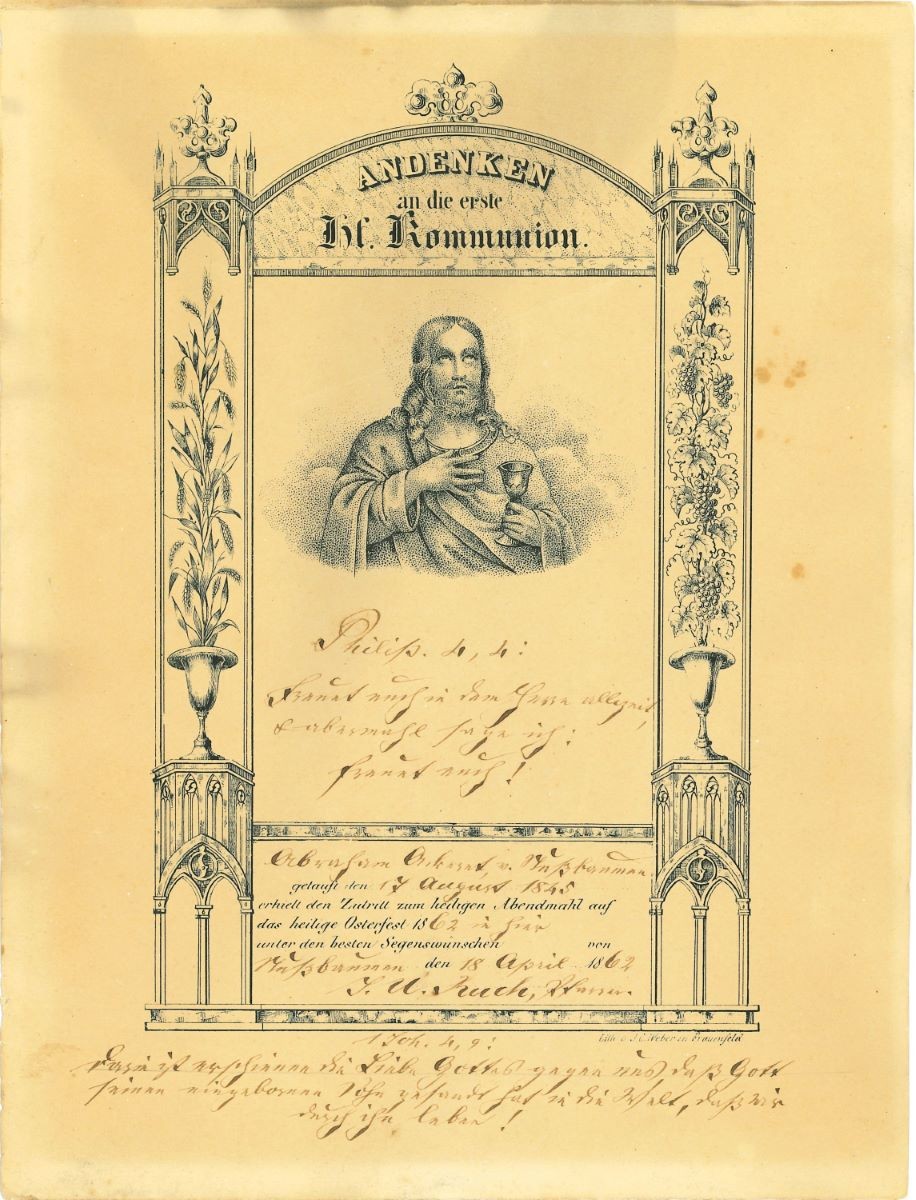 ANDENKEN
an die erste
Hl. Kommunion.
Philip. 4, 4:
Freuet euch in dem Herrn allezeit,
& abermahl sage ich:
freuet euch!
Abraham Ackeret, v. Nußbaumen
getauft den 17 August 1845
erhielt den Zutritt zum heiligen Abendmahl auf
das heilige Osterfest 1862 in hier
unter den besten Segenswünschen von
Nußbaumen den 18 April 1862
J. U. Ruch, Pfarrer.
Lith. v. J. C. Weber in Frauenfeld
1 Joh. 4, 9:
Darin ist erschienen die Liebe Gottes gegen uns, daß Gott
seinen eingebornen Sohn gesandt hat in die Welt, daß wir
durch ihn leben!